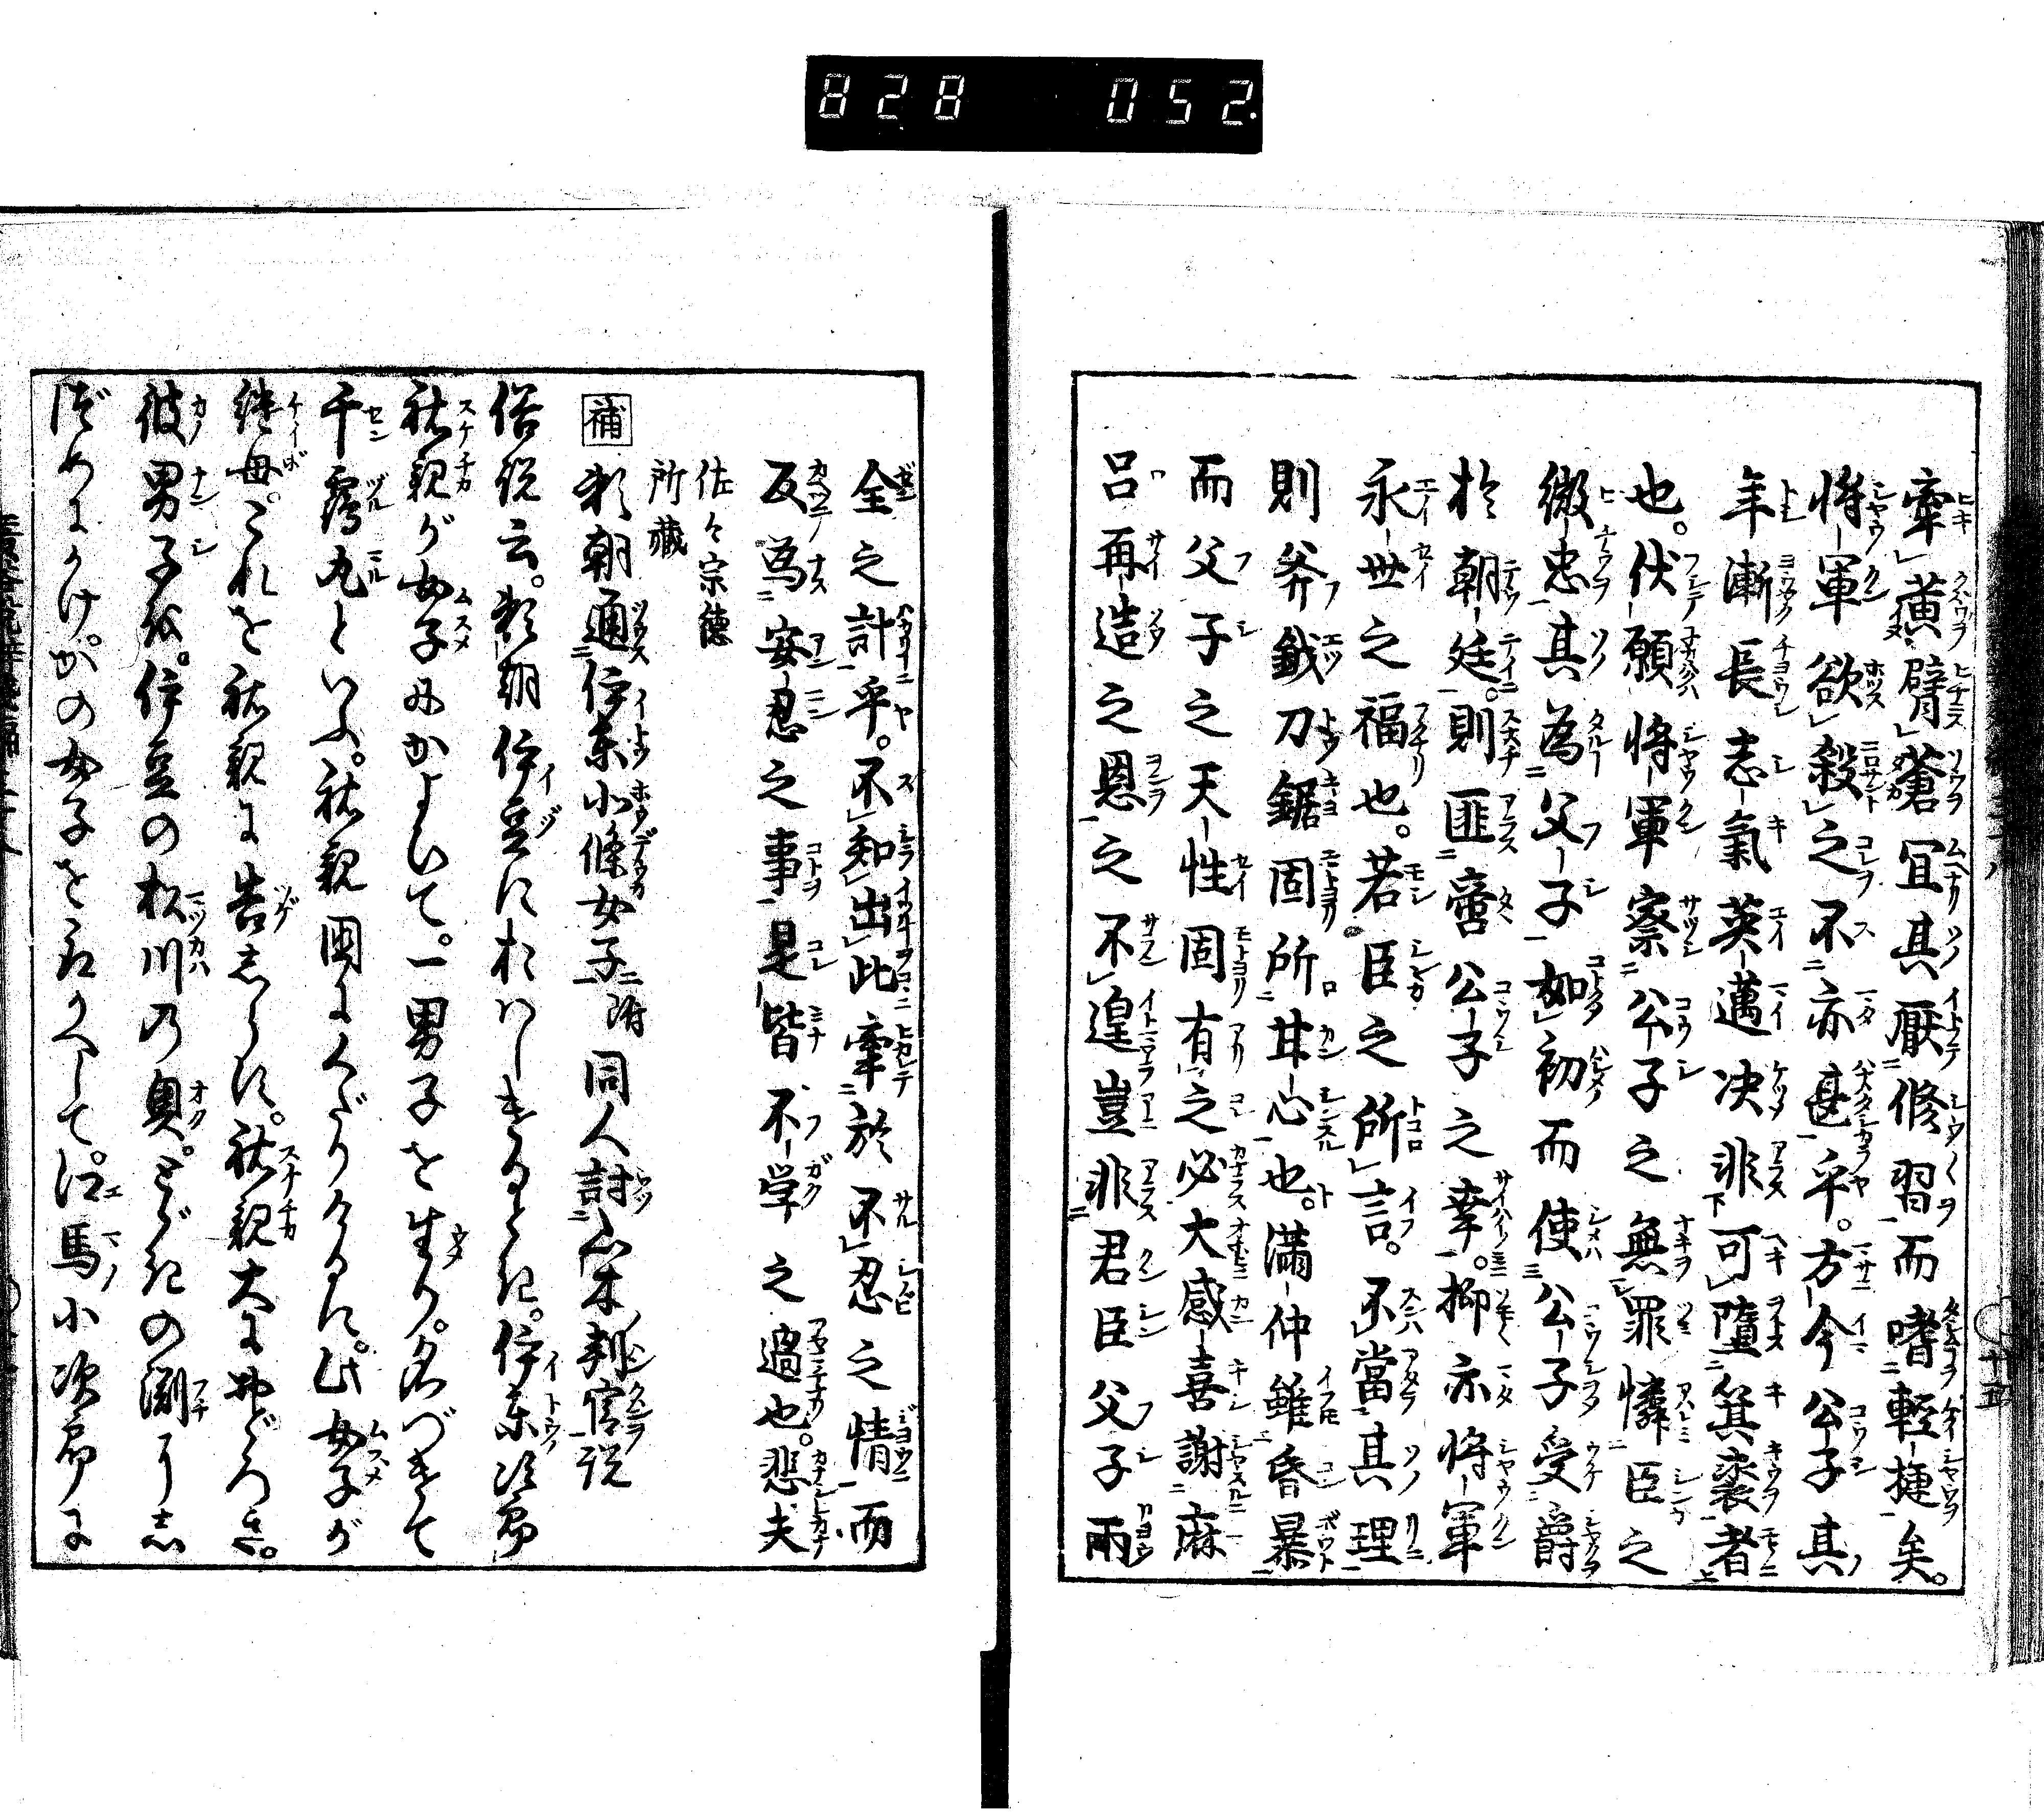 828 052
牽黄臂蒼冝其厭修習而嗜輕捷矣。
将軍欲殺之不亦甚乎。方今公子其
年漸長志氣英邁决非可墮箕裘者
也。伏願将軍察公子之無罪憐臣之
微忠其為父子如初而使公子受爵
於朝廷。則匪啻公子之幸。抑亦将軍
永世之福也。若臣之所言。不當其理
則斧鉞刀鋸固所甘心也。満仲雖昏暴
而父子之天性固有之必大感喜謝麻
呂再造之恩之不遑豈非君臣父子兩
全之計乎。不知出此牽於不忍之情而
反為安忍之事是皆不学之過也。悲夫
佐々宗徳
所藏
補 頼朝通伊東北條女子附同人討山木判官説
俗説云。頼朝伊豆におはしけるとき。伊東次郎
祐親が女子にかよひて。一男子を生り。名づけて
千靏丸といふ。祐親国にくだりけるに。此女子が
継母。これを祐親に告しらに。祐親大におどろき。
彼男子を。伊豆の松川の奥。とゞきの渕にし
づめにかけ。かの女子をとりかへして。江馬小次郎に